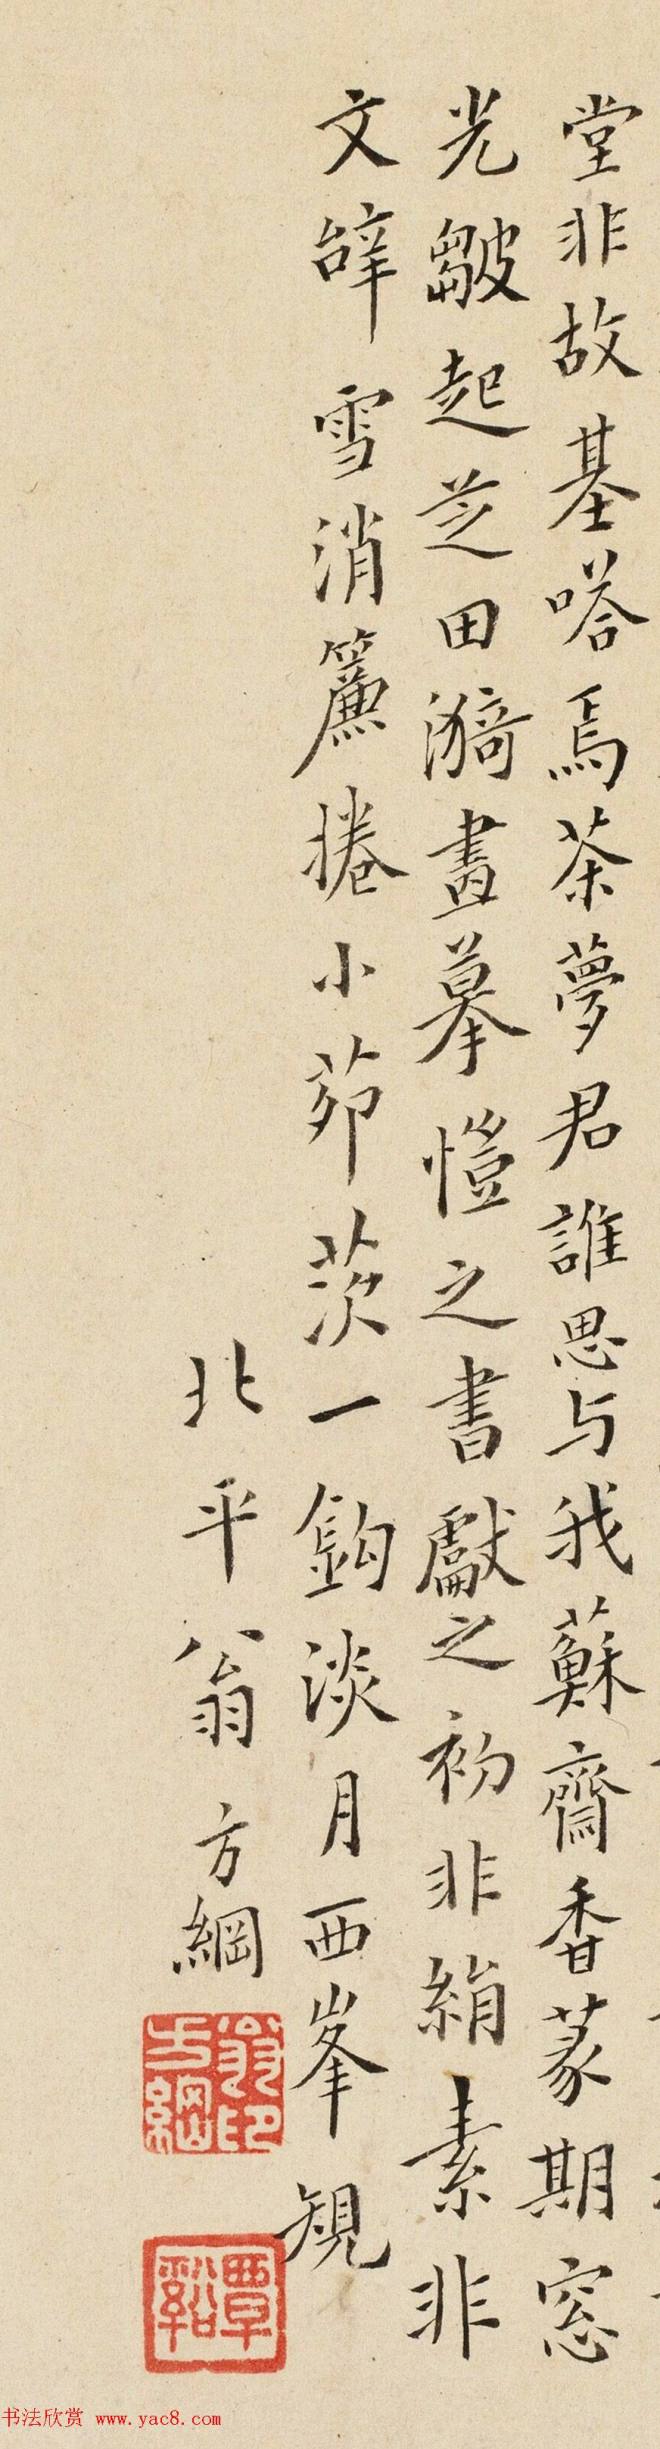 堂非故基嗒焉茶夢君誰思与我蘇齋香篆期窓
光皺起芝田漪畫摹愷之書獻之初非絹素非
文辞雪消簾捲小茆茨一鈎淡月西峯規
北平翁方綱
翁方綱印
覃谿
书法欣赏 www.yac8.com